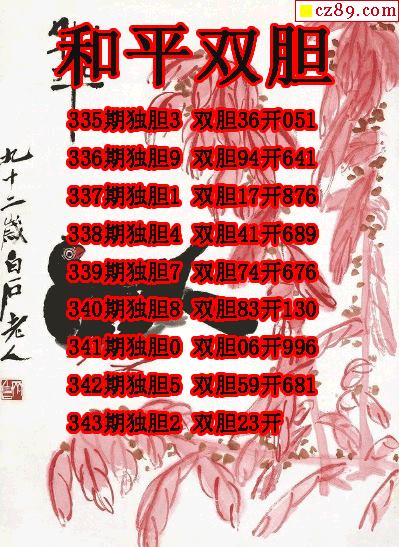 cz89.com
和平
和平双胆
335期独胆3 双胆36开051
336期独胆9 双胆94开641
337期独胆1 双胆17开876
338期独胆4 双胆41开689
339期独胆7 双胆74开676
340期独胆8 双胆83开130
341期独胆0 双胆06开996
342期独胆5 双胆59开681
343期独胆2 双胆23开
九十二岁白石老人